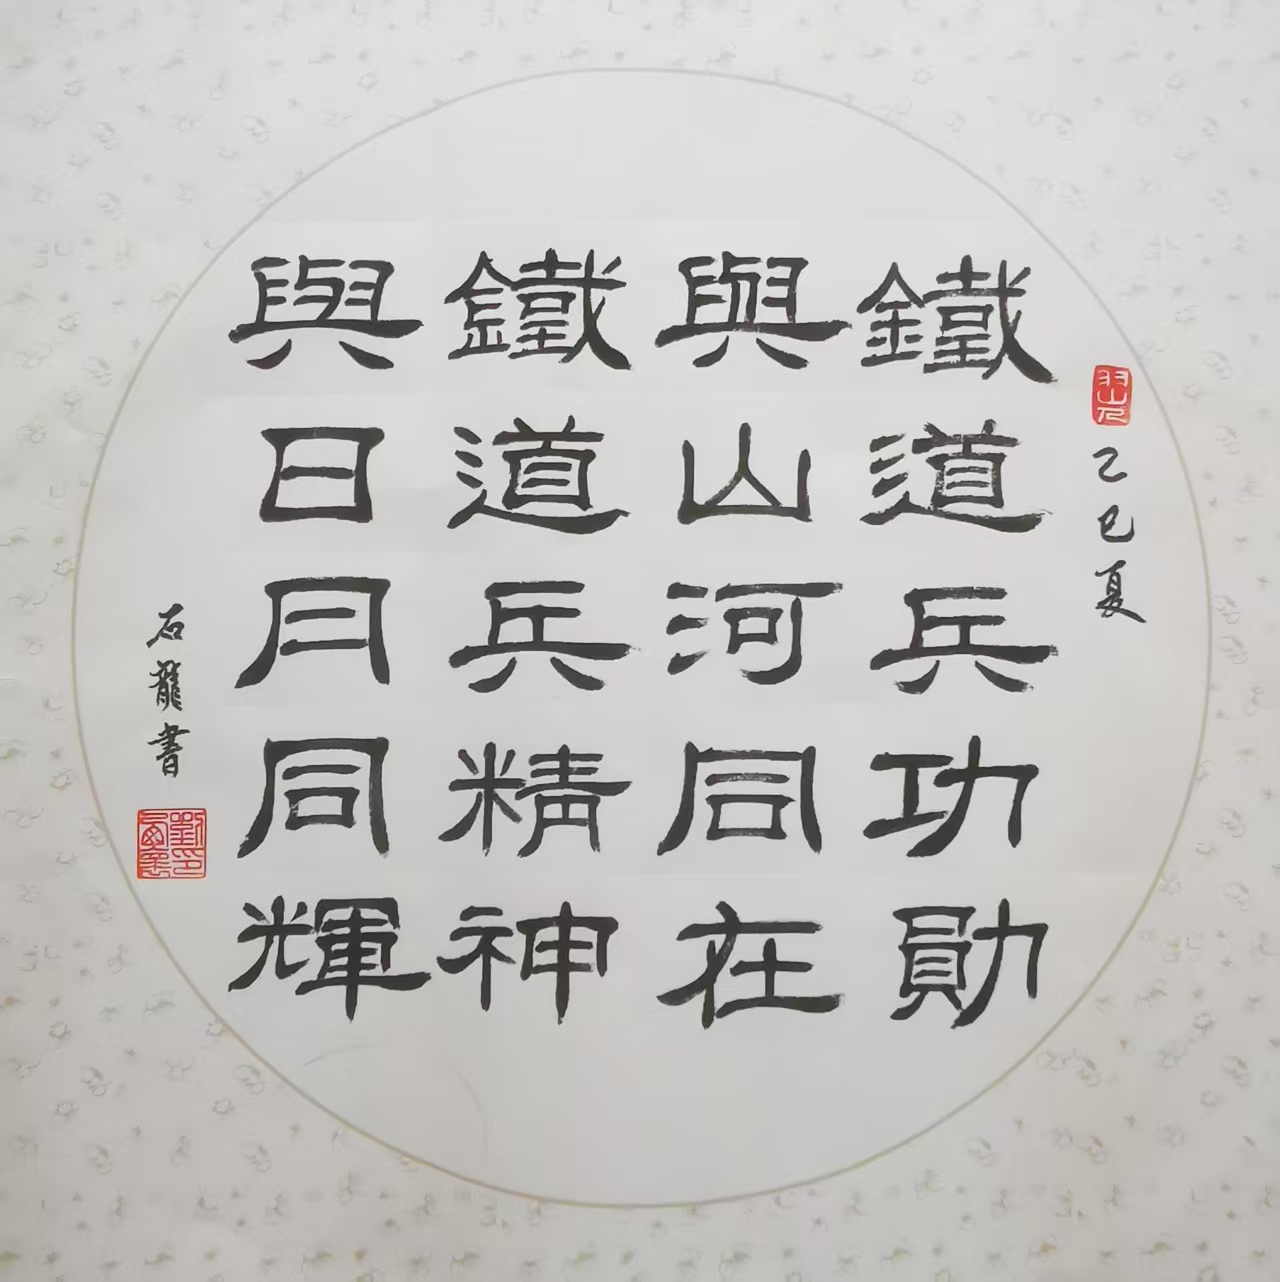 鐵道兵功勛
與山河同在
鐵道兵精神
與日月同輝
乙巳夏
石龍書